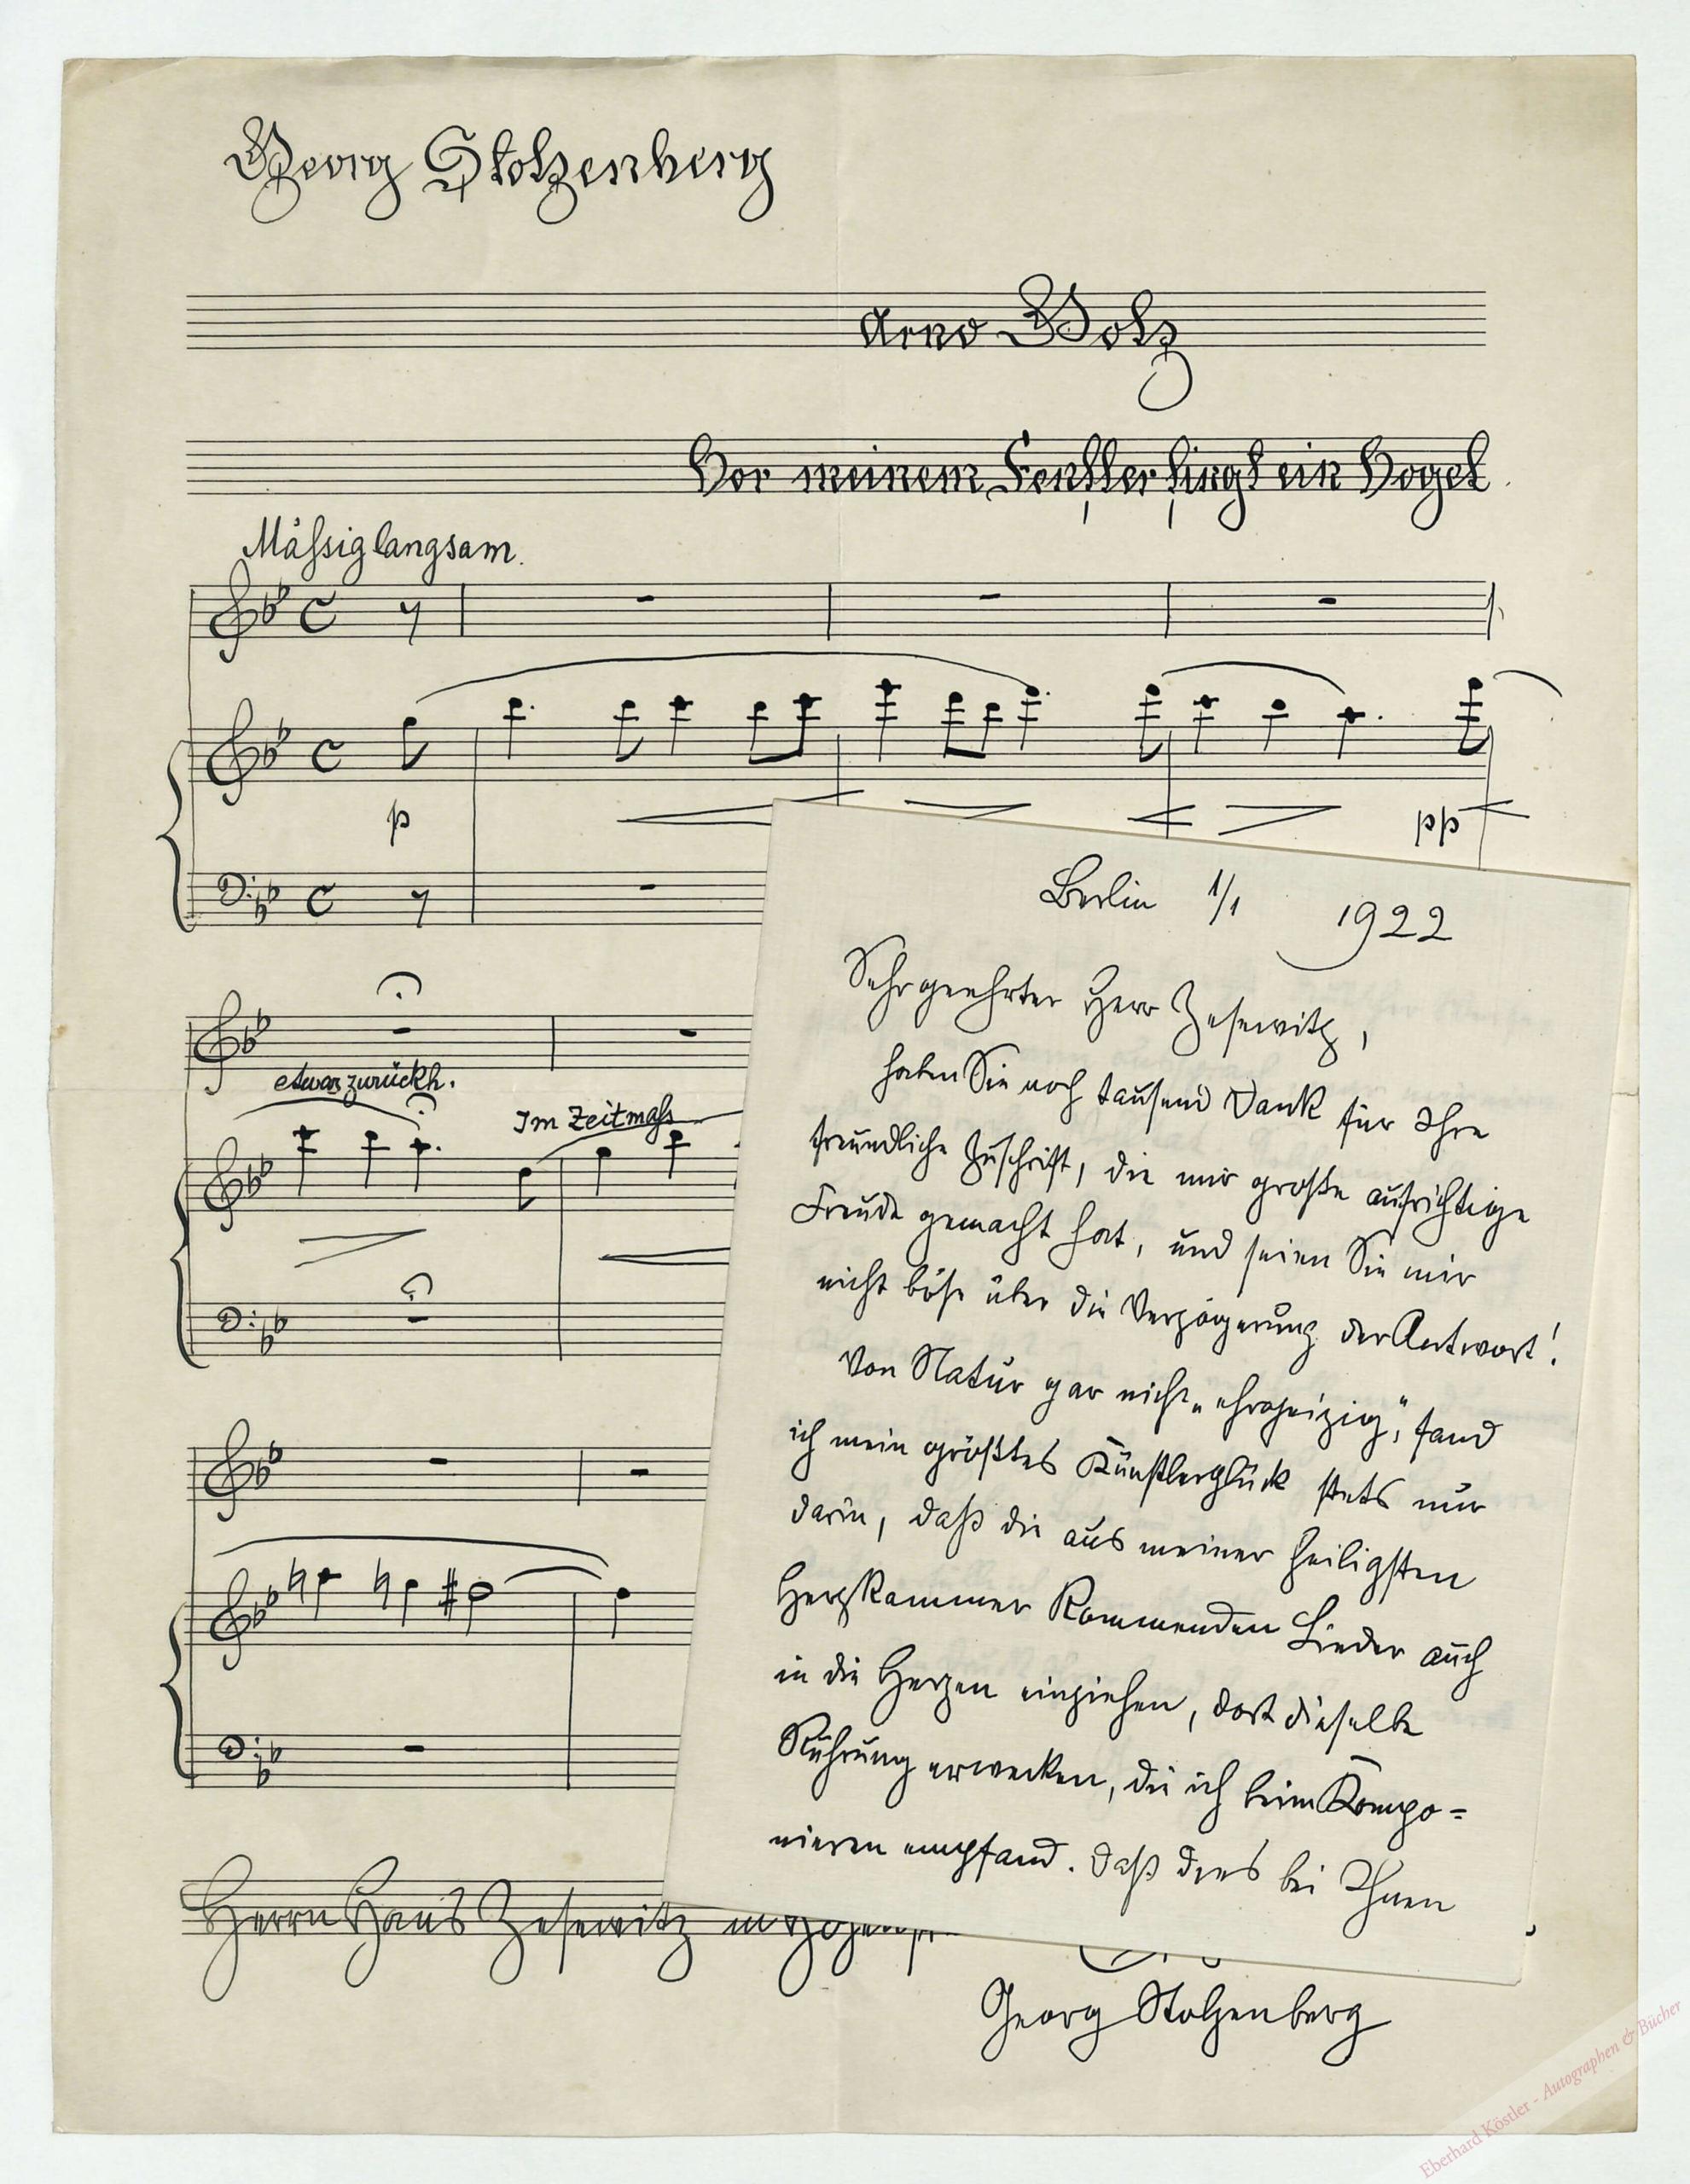 Georg Stolzenberg
Arno Holz
Vor meinem Fenster singt ein Vogel.
Mässig langsam.
p
pp
etwas zurückh.
Im Zeitmass
Herrn Hans Zesewitz
Georg Stolzenberg
Berlin 1/1 1922
Sehr geehrter Herr Zesewitz,
haben Sie noch tausend Dank für Ihre
freundliche Zuschrift, die mir große aufrichtige
Freude gemacht hat, und seien Sie mir
nicht böse über die Verzögerung der Antwort!
Von Natur gar nicht „ehrgeizig“, fand
ich mein größtes Künstlerglück stets nur
darin, daß die aus meiner heiligsten
Herzkammer kommenden Lieder auch
in die Herzen einziehen, dort dieselbe
Rührung erwecken, die ich beim Kompo=
nieren empfand. Daß dies bei Ihnen
Eberhard Köstler - Autographen & Bücher